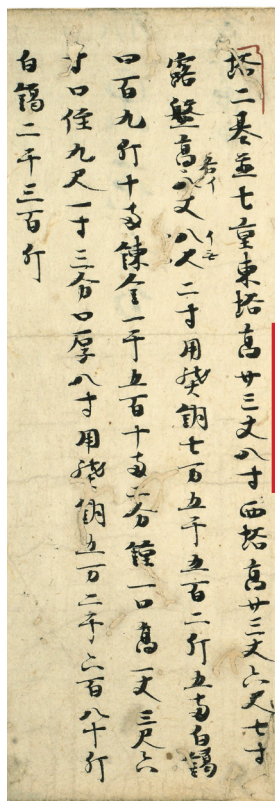 塔二基並七重東塔高廿三丈八寸西塔高廿三丈六尺七寸
露盤高八丈八尺二寸用熟銅七万五千五百二斤五両白鑞
四百九斤十両練金一千五百十両二分鐘一口高一丈三尺六
寸口径九尺一寸三分口厚八寸用熟銅五万二千六百八十斤
白鑞二千三百斤